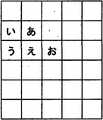 いあ
うえお